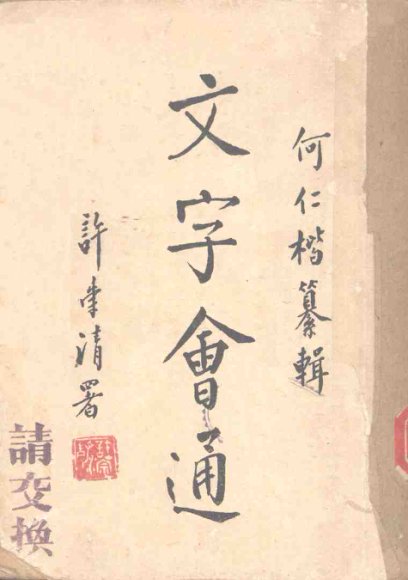 何仁楷纂輯
文字會通
許李清署
請交換